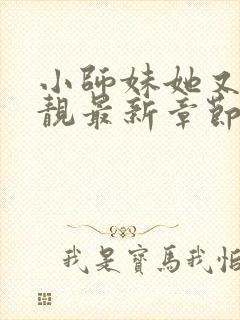 小師妹她又
靚最新章節
我是寶馬我怕